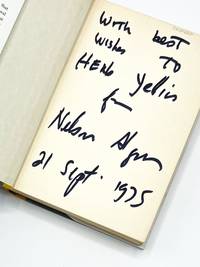 With best
wishes to
Herb Yellin
from
Nelson Algren
21 Sept. 1975